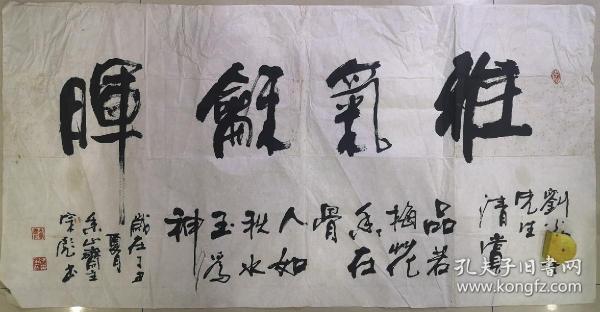 雅氣龢暉
劉
先生
清賞
品若
梅花
香在
骨
人如
秋水
玉為
神
歲在丁丑
夏月
香山齋主
宗彪書
孔夫子旧书网
www.kongfz.com